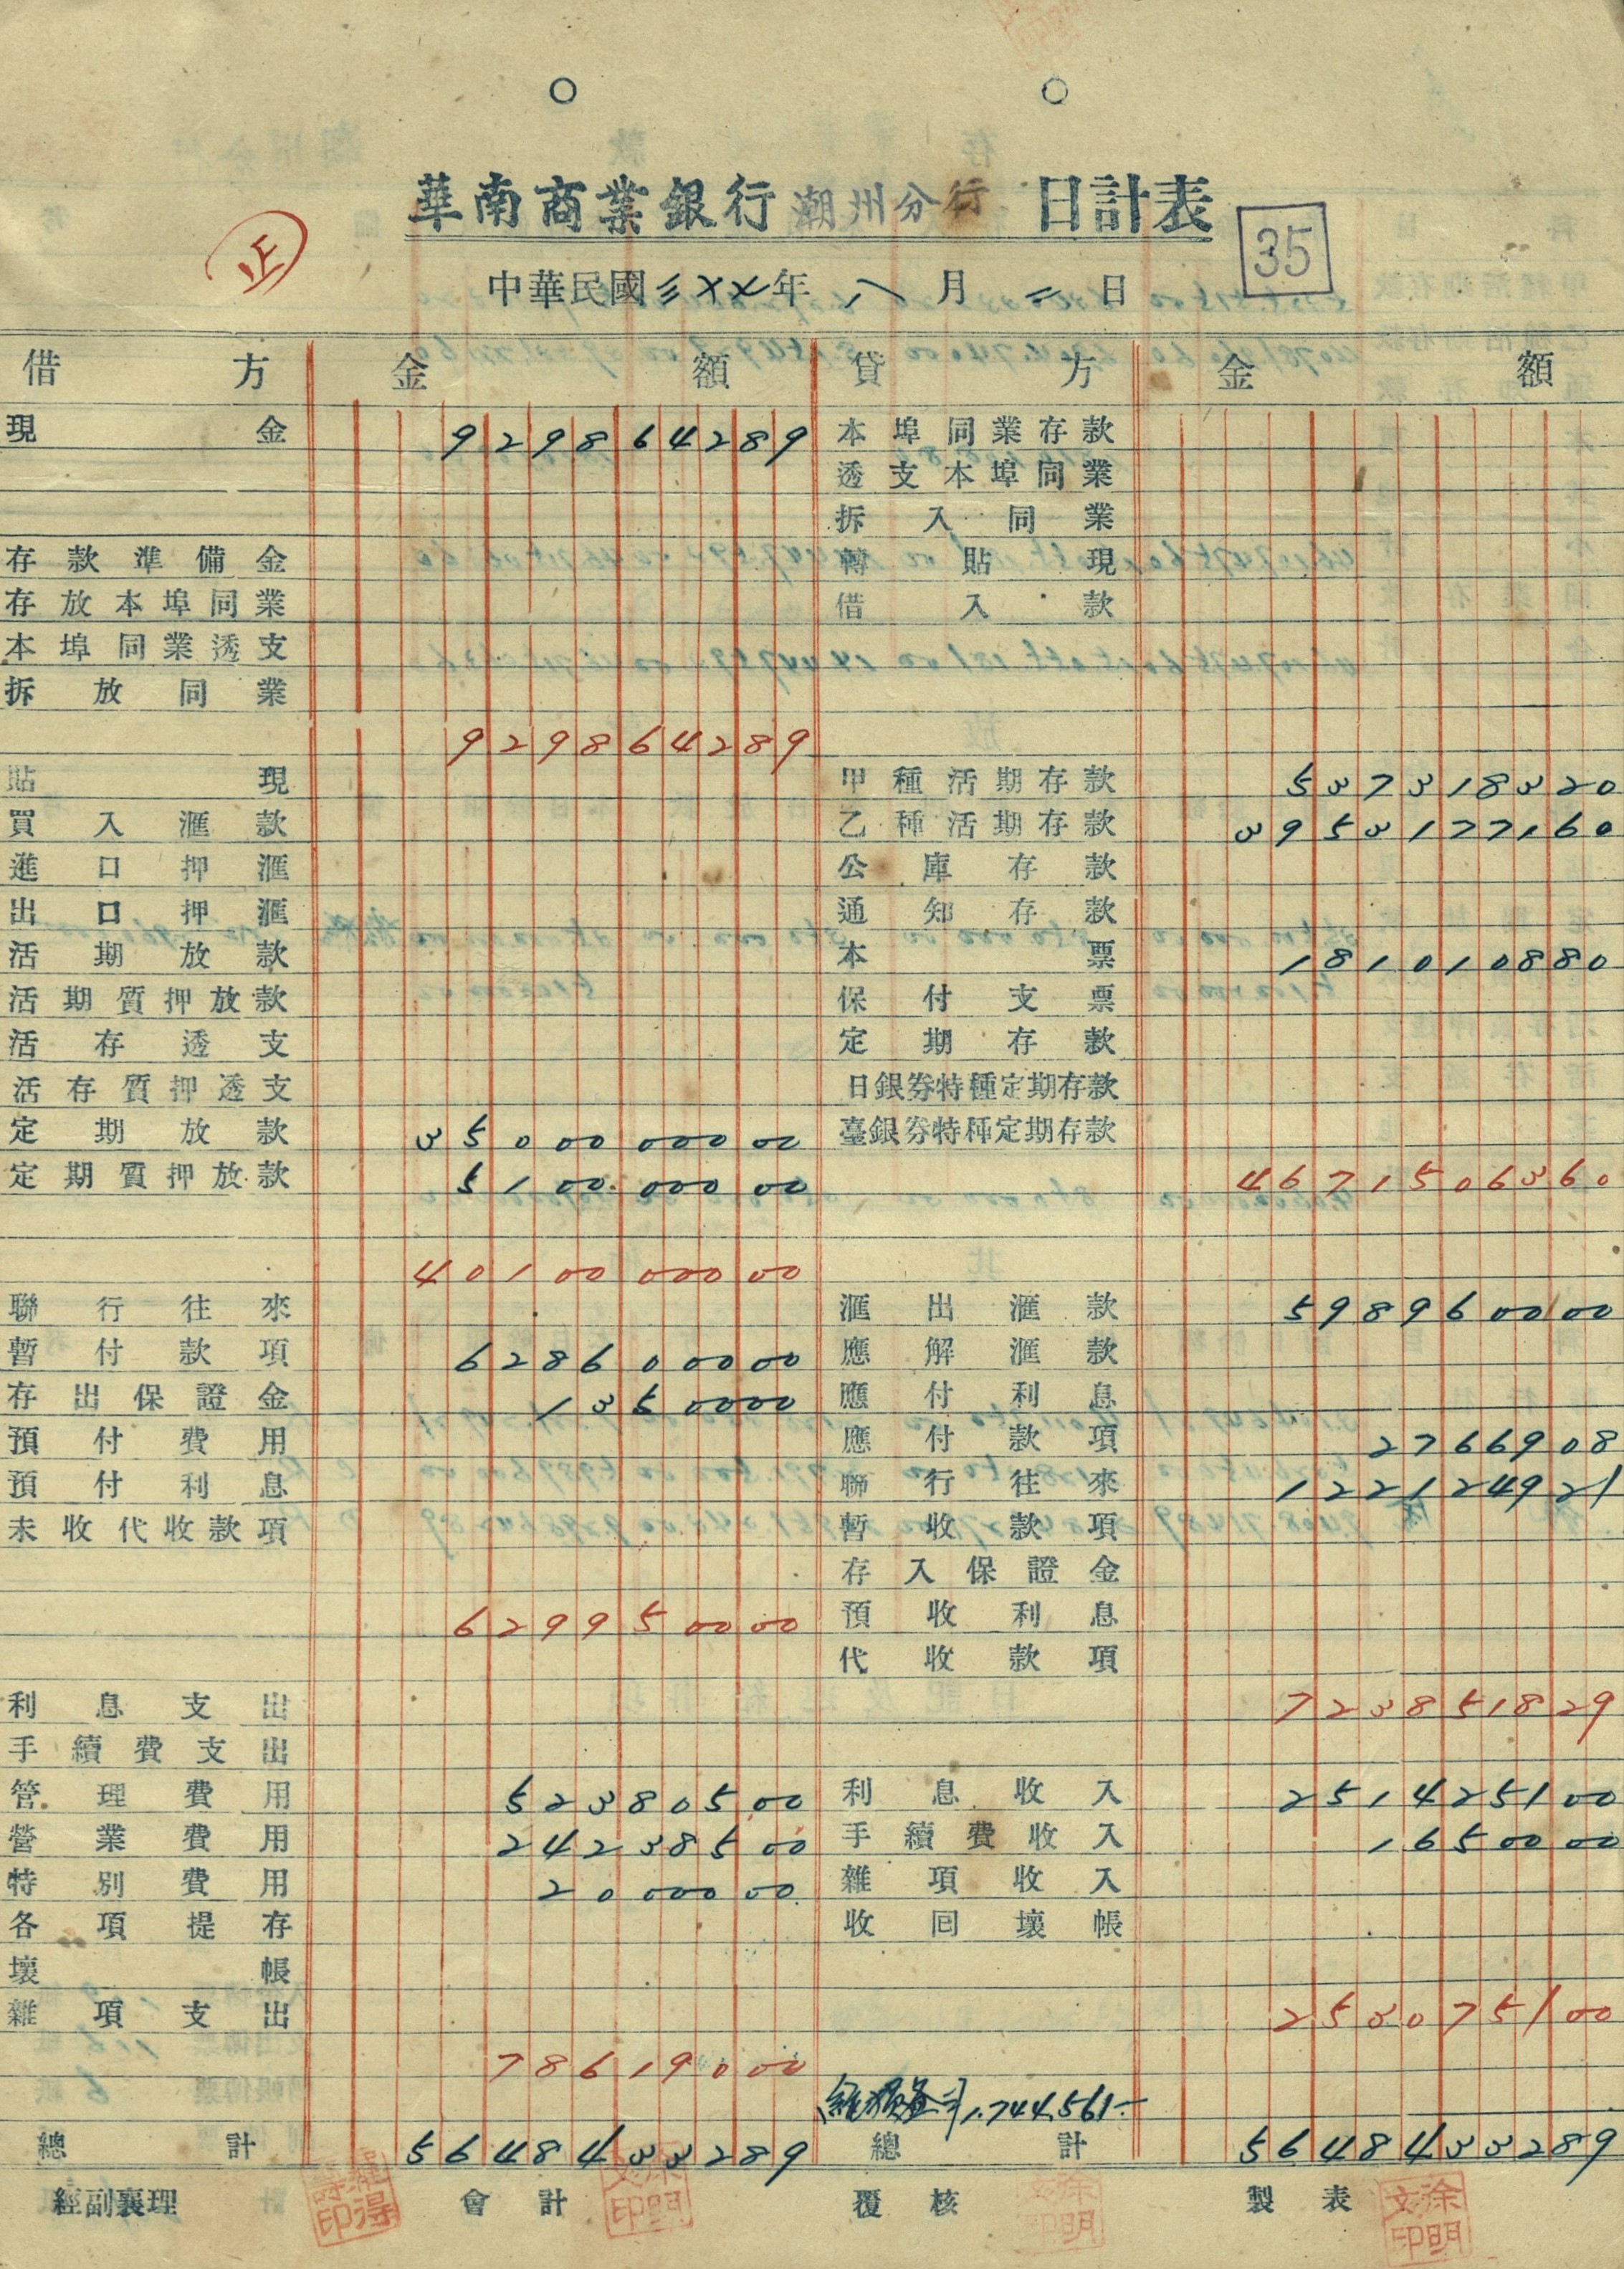 華南商業銀行 潮州分行 日計表
35
正
中華民國 年 八 月 二 日
借方 金額 貸方 金額
現金 929864289 本埠同業存款
透支本埠同業
拆入同業
存款準備金 轉貼現
存放本埠同業 借入款
本埠同業透支
拆放同業
929864289
貼現 甲種活期存款 537318320
買入滙款 乙種活期存款 3953177160
進口押滙 公庫存款
出口押滙 通知存款
活期放款 本票 181010880
活期質押放款 保付支票
活存透支 定期存款
活存質押透支 日銀券特種定期存款
定期放款 3500000000 臺銀券特種定期存款
定期質押放款 510000000 4671506360
4010000000
聯行往來 滙出滙款 598960000
暫付款項 628600000 應解滙款
存出保證金 1350000 應付利息
預付費用 應付款項 2766908
預付利息 聯行往來 122124921
未收代收款項 暫收款項
存入保證金
629950000 預收利息
代收款項
利息支出 723851829
手續費支出
管理費用 52380500 利息收入 251425100
營業費用 24238500 手續費收入 1650000
特別費用 2000000 雜項收入
各項提存 收回壞帳
壞帳
雜項支出 253075100
78619000
1,744,561-
總計 5648433289 總計 5648433289
經副襄理 會計 覆核 製表